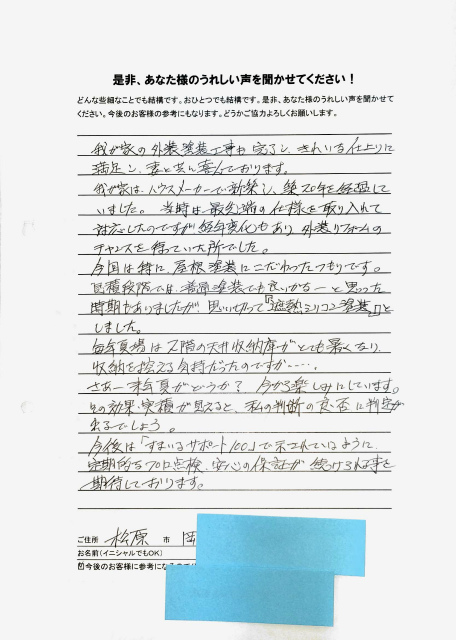 是非、あなた様のうれしい声を聞かせてください！
どんな些細なことでも結構です。おひとつでも結構です。是非、あなた様のうれしい声を聞かせて
ください。今後のお客様の参考にもなります。どうかご協力よろしくお願いします。
我が家の外装塗装工事も完了し、きれいな仕上りに
満足し、妻と共に喜んでおります。
我が家は、ハウスメーカーで新築し、築20年を経過して
いました。当時は最先端の仕様を取り入れて
対応したのですが経年変化もあり外装リフォームの
チャンスを待っていた所でした。
今回は特に、屋根塗装にこだわったつもりです。
見積段階では、普通塗装でも良いかなーと思った
時期もありましたが思い切って『遮熱シリコン塗装』と
しました。
毎年夏場は2階の天井収納庫がとても暑くなり、
収納を控える気持だったのですが・・・・。
さあー来年夏がどうか？今から楽しみにしています。
その効果・実積が見えると、私の判断の良・否に判定が
出るでしょう。
今後は「すまいるサポート100」で示されているように
定期的なプロ点検、安心の保証が続けられる事を
期待しております。
ご住所 松原 市 岡
お名前(イニシャルでもOK)
今後のお客様に参考にな